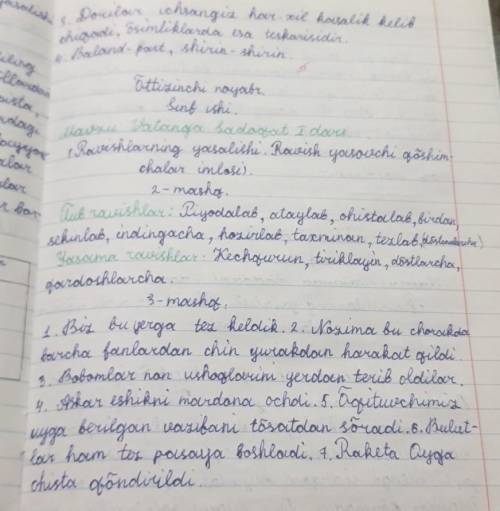 3. Dorilar ichsangiz har xil kasalik kelib
chiqadi, Ösimliklarda esa teskarisidir.
4. Baland-past, shirin-shirin.
Öttizinchi noyabr.
Sinf ishi.
Mavzu Vatanga Sadoqat I dars
1. Ravishlarning yasalishi. Ravish yasovchi qöshim-
chalar imlosi).
2-mashq.
Tub ravishlar: Piyodalab, ataylab, ohistalab, birdan,
sekinlab, indingacha, hozirlab, taxminan, tezlab
Yasama ravishlar: Kechqurun, tiriklayin, döstlarcha,
qardoshlarcha.
3-mashq.
1. Biz bu yerga tez keldik. 2. Nozima bu chorakda
barcha fanlardan chin yurakdan harakat qildi
3. Bobomlar non ushoqlarini yerdan terib oldilar.
4. Askar eshikni mardana ochdi. 5. Öqituvchimiz
uyga berilgan vazifani tösatdan söradi. 6. Bulut-
lar ham tez pasaya boshladi. 7. Raketa Oyga
ohista qöndirildi.